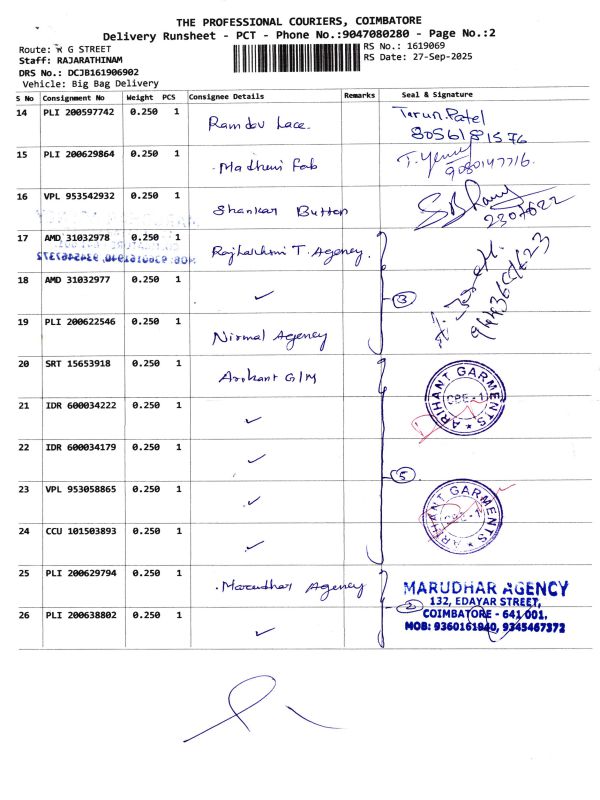 THE PROFESSIONAL COURIERS, COIMBATORE
Delivery Runsheet - PCT - Phone No.:9047080280 - Page No.:2
Route: K G STREET
RS No.: 1619069
Staff: RAJARATHINAM
RS Date: 27-Sep-2025
DRS No.: DCJB161906902
Vehicle: Big Bag Delivery
S No Consignment No Weight PCS Consignee Details Remarks Seal & Signature
14 PLI 200597742 0.250 1 Ramdev Lace. Tarun.Patel
8056181576
15 PLI 200629864 0.250 1 Madhumi Fab
9080147716.
16 VPL 953542932 0.250 1 Shankar Button
2307622
17 AMD 31032978 0.250 1 Rajlakshmi T. Agency.
18 AMD 31032977 0.250 1 ✓ 3
19 PLI 200622546 0.250 1 Nirmal Agency
20 SRT 15653918 0.250 1 Arihant G/M
ARIHANT GARMENTS
CBE-1
21 IDR 600034222 0.250 1 ✓
22 IDR 600034179 0.250 1 ✓ 5
23 VPL 953058865 0.250 1 ✓
ARIHANT GARMENTS
CBE-1
24 CCU 101503893 0.250 1 ✓
25 PLI 200629794 0.250 1 Marudhar Agency
MARUDHAR AGENCY
132, EDAYAR STREET,
COIMBATORE - 641 001.
MOB: 9360161940, 9345467372
26 PLI 200638802 0.250 1 ✓ 2